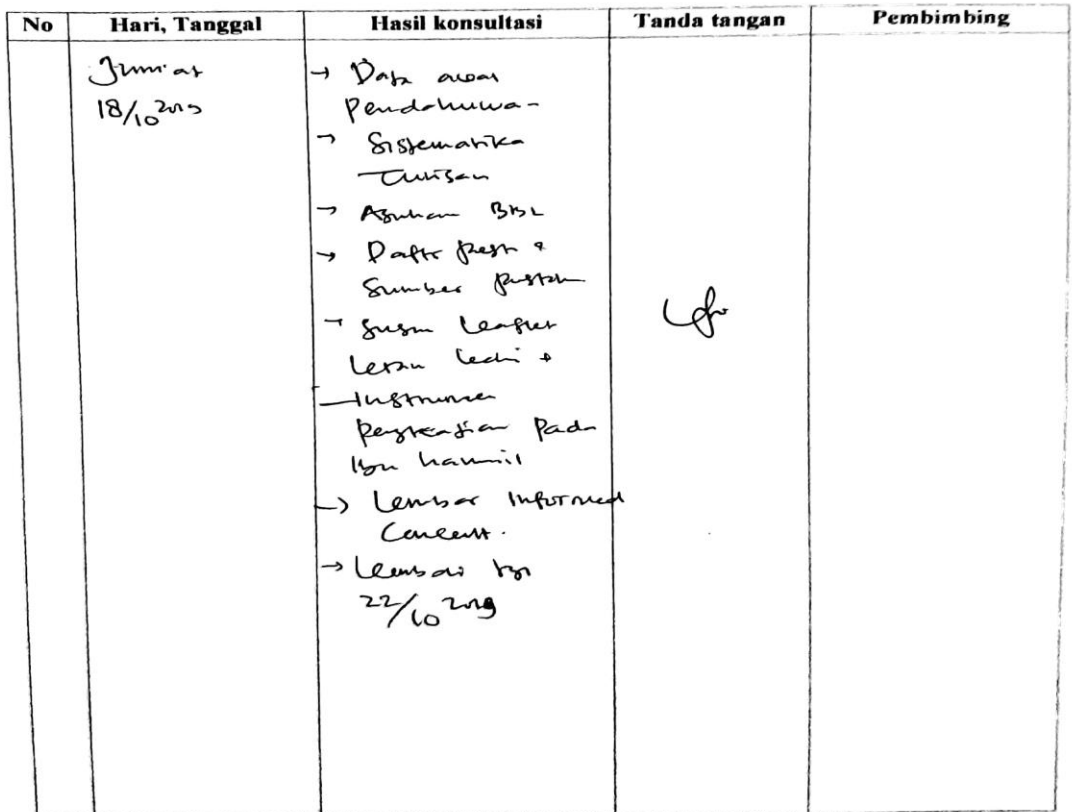 No Hari, Tanggal Hasil konsultasi Tanda tangan Pembimbing
Jum'at
18/10 2019
→ Data awal
Pendahulua-
→ Sistematika
Tulisan
→ Asuhan BBL
→ Daftr &
Sumber pustak
→ Susun Leaflet
+
Instrumen
Pengkajian Pada
Ibu hamil
→ Lembar Informed
Concent.
→ Kembali tgl
22/10 2019